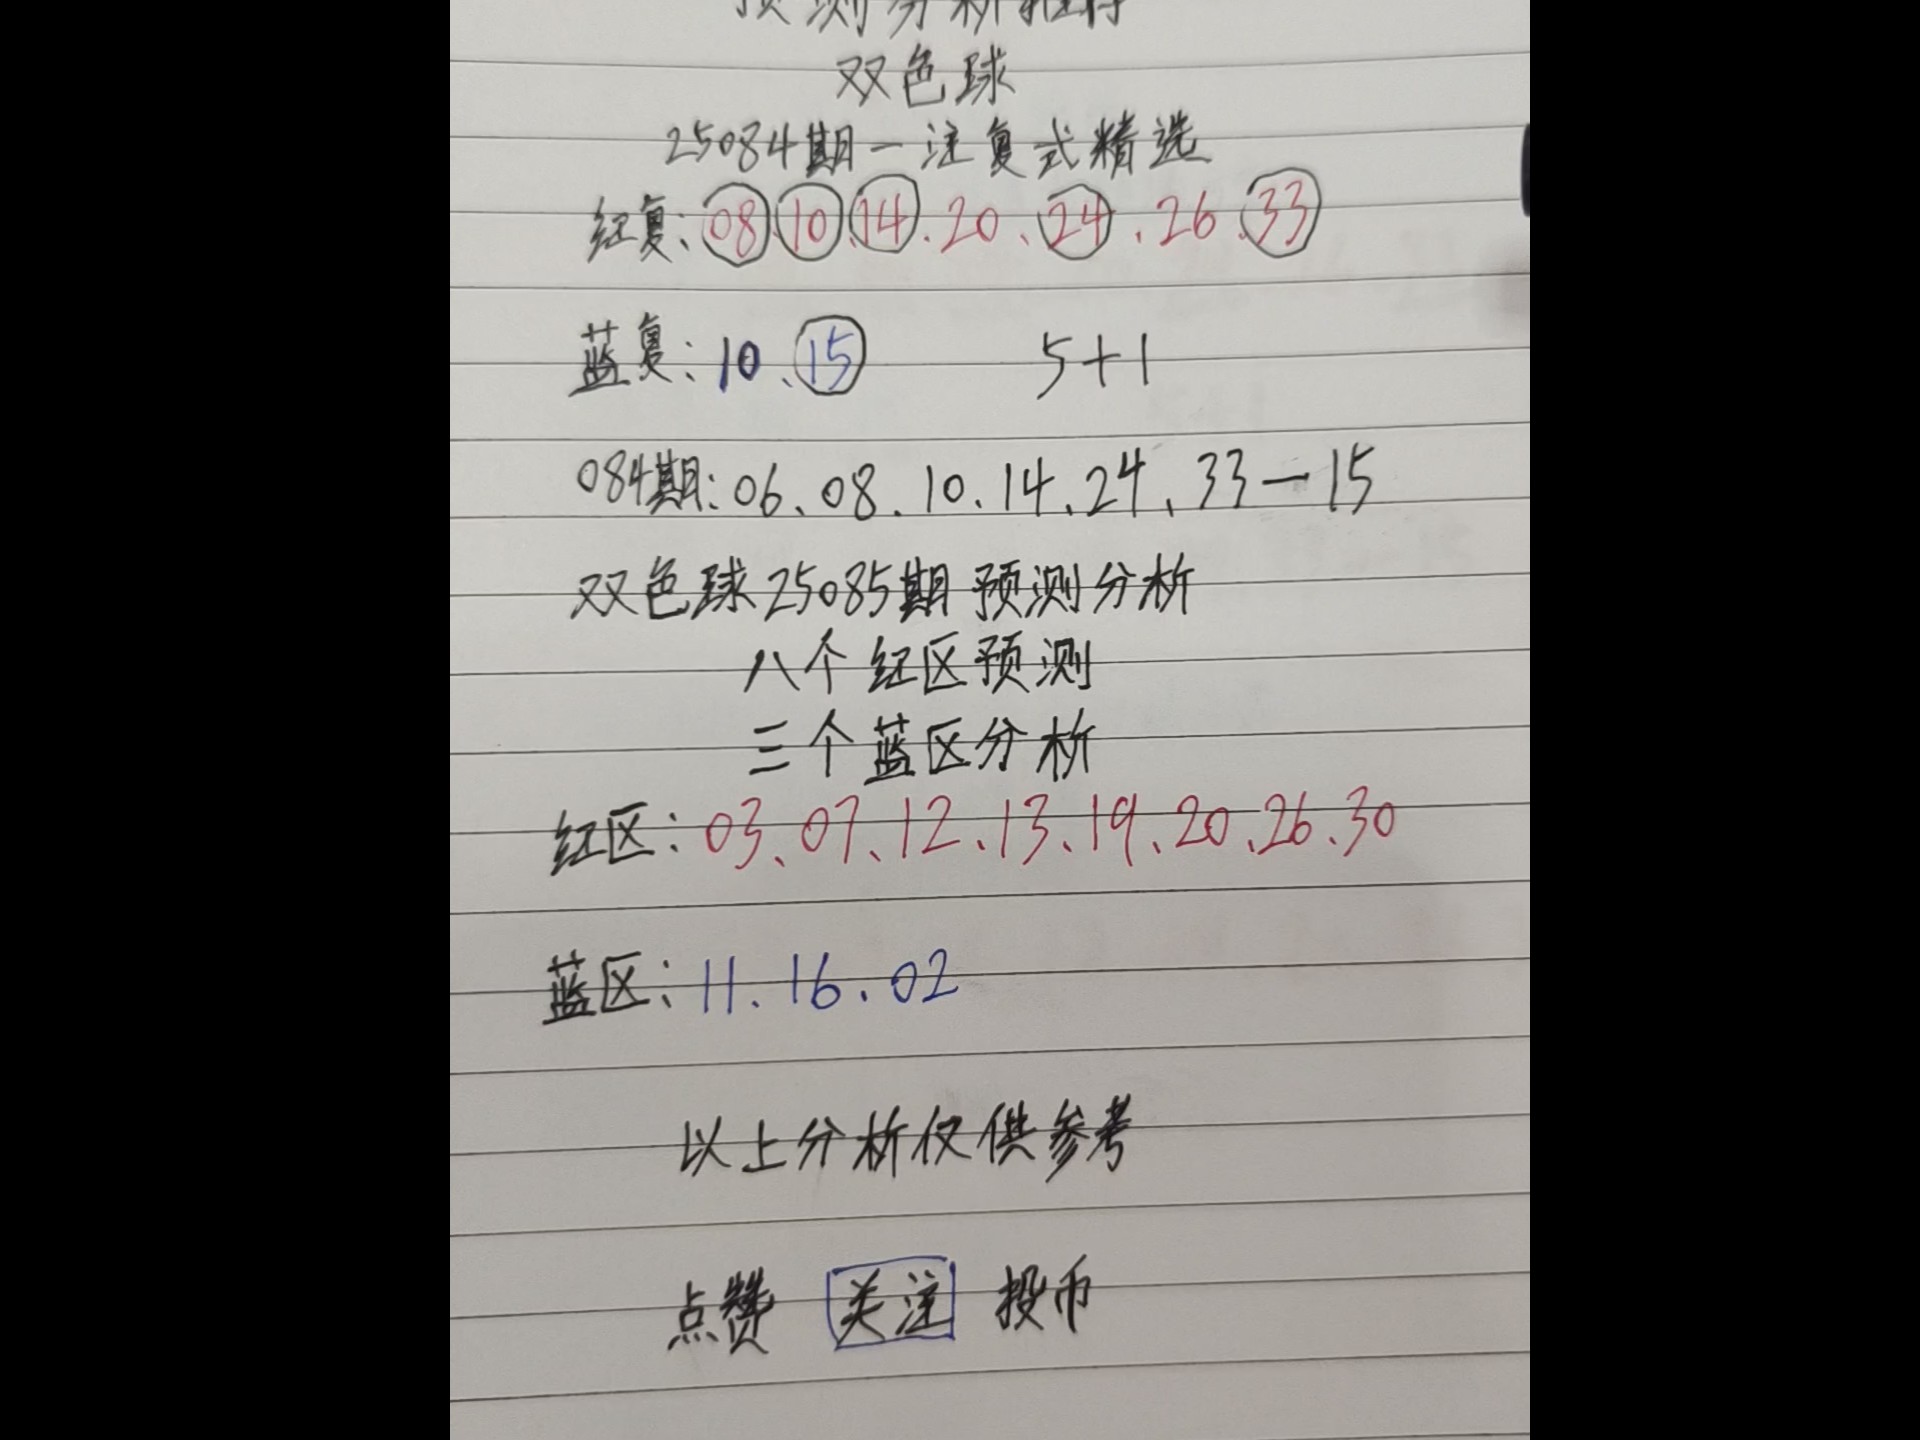 预测分析推荐
双色球
25084期一注复式精选
红复:08.10.14.20.24.26.33
蓝复:10.15 5+1
084期:06.08.10.14.24.33—15
双色球25085期预测分析
八个红区预测
三个蓝区分析
红区:03.07.12.13.19.20.26.30
蓝区:11.16.02
以上分析仅供参考
点赞 关注 投币